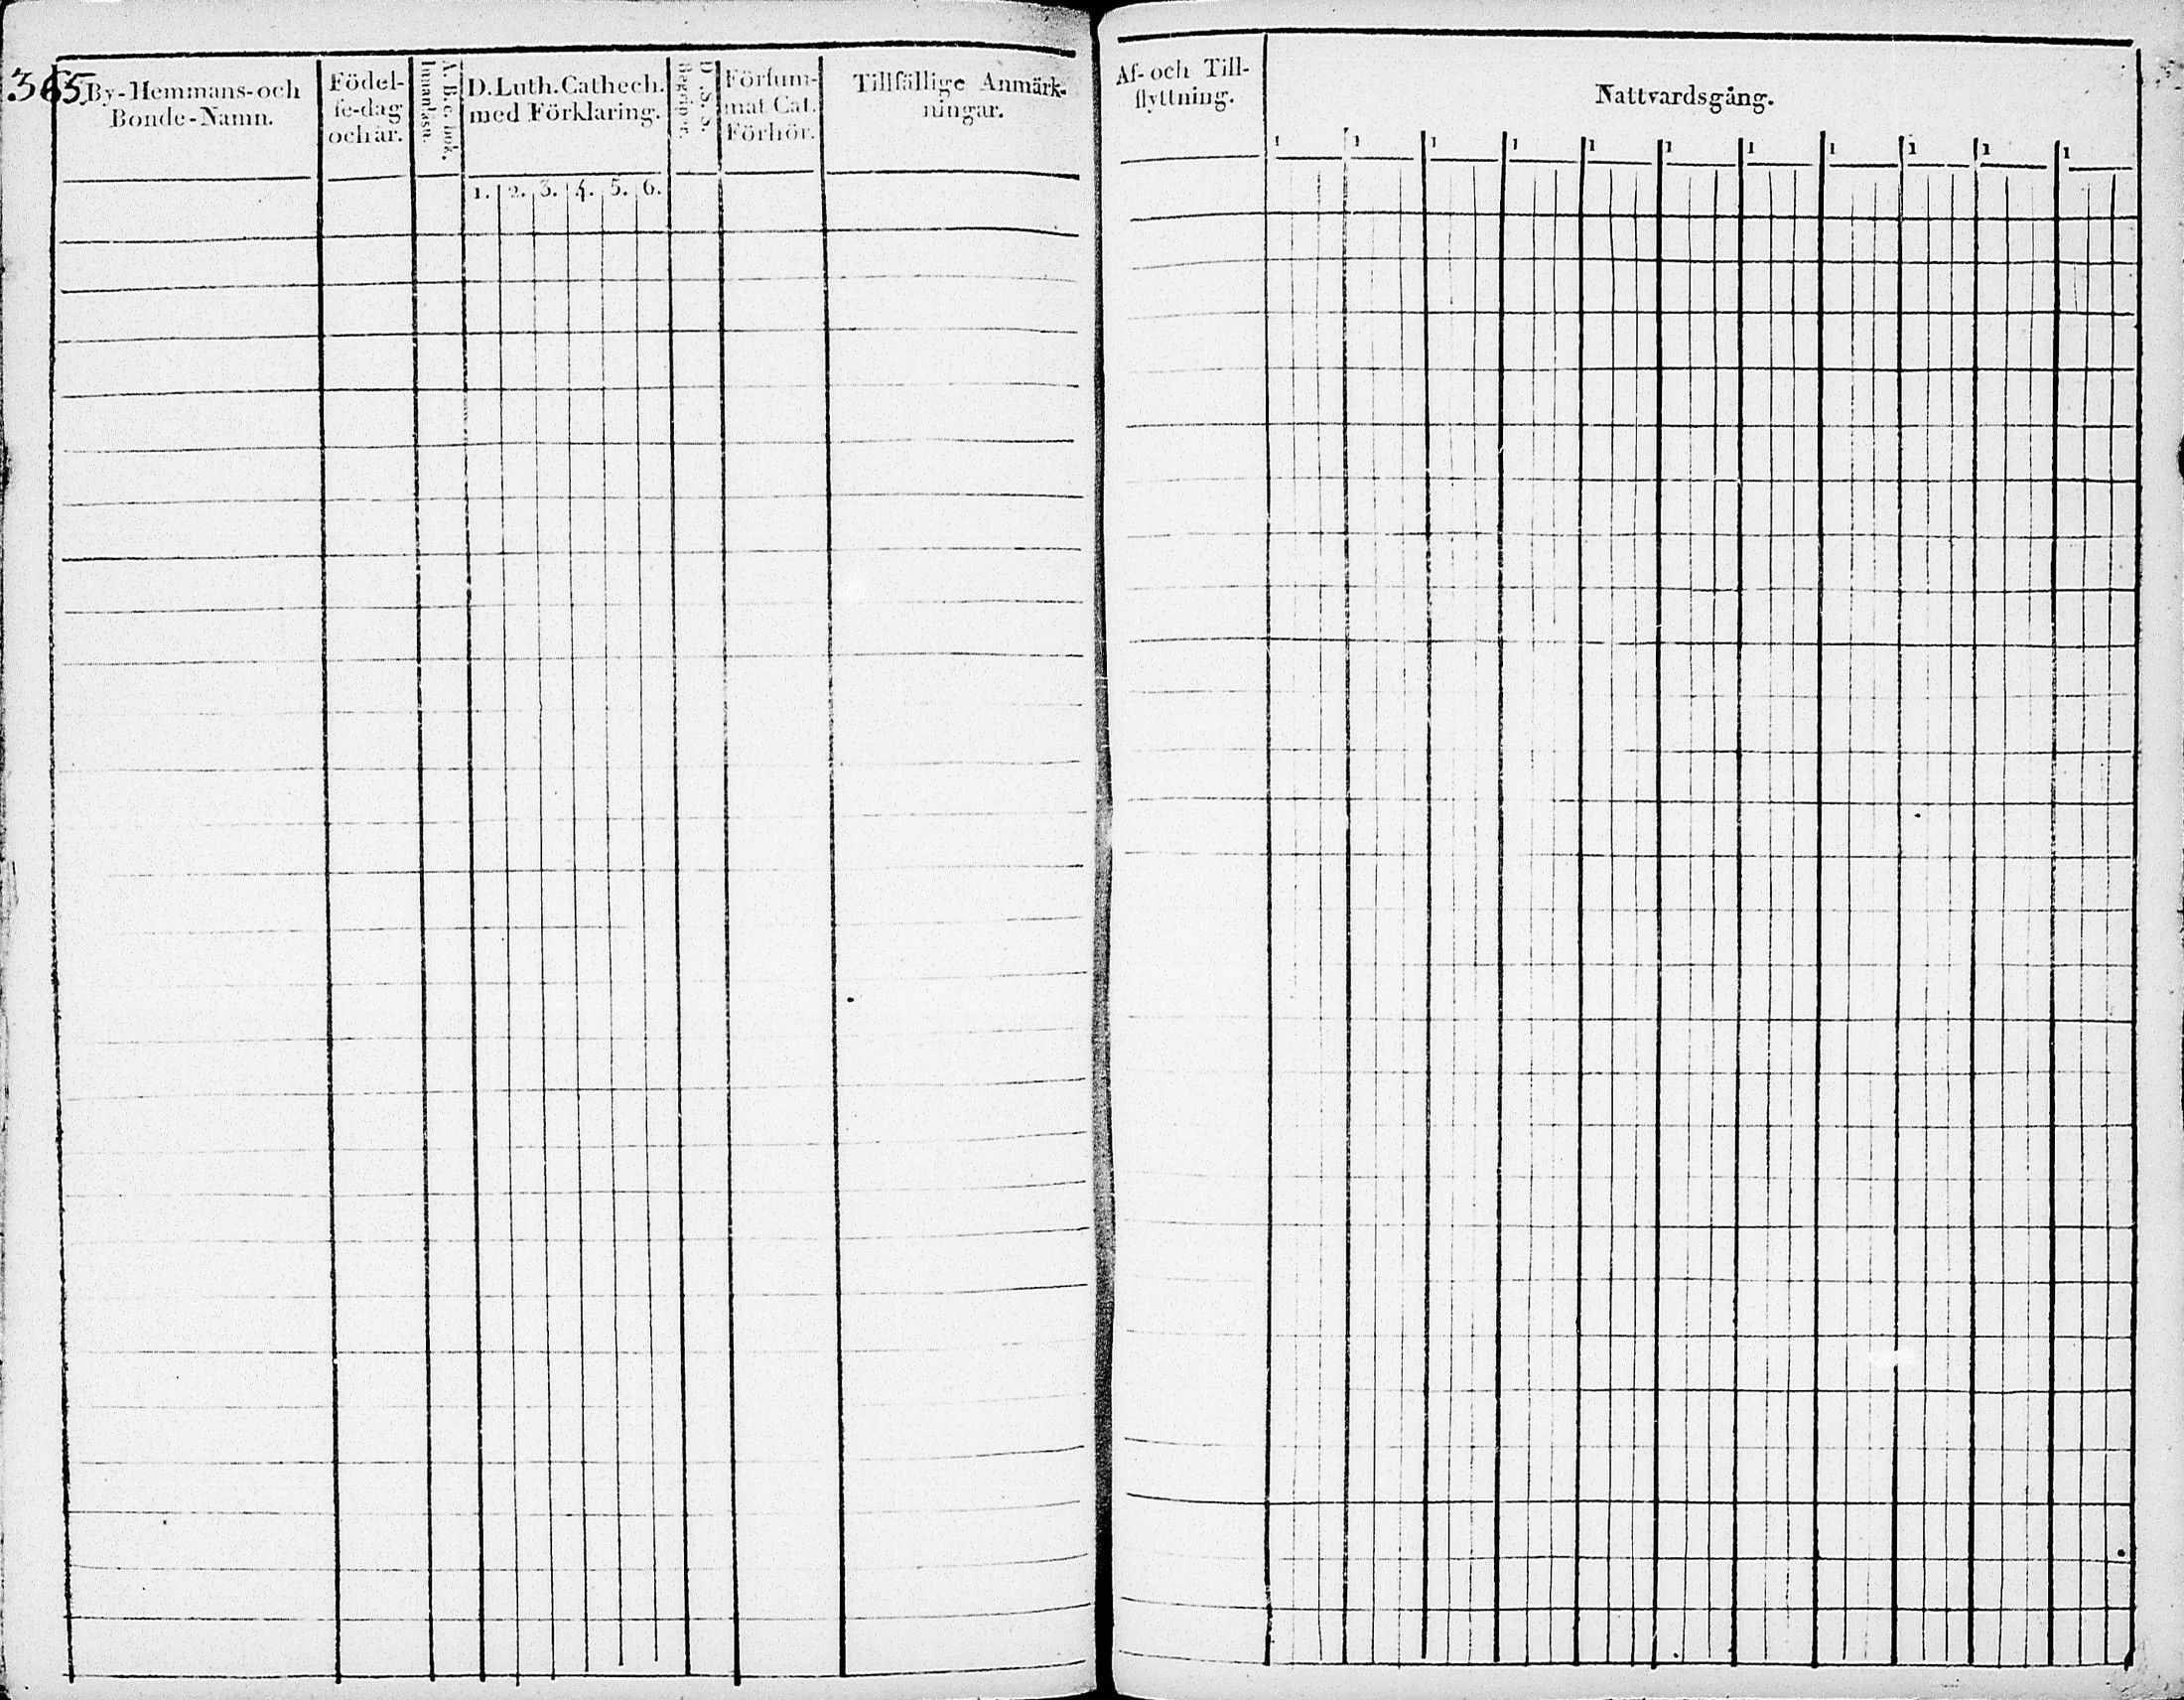 365.
By-Hemmans-och
Bonde-Namn.
Födel-
ſe-dag
och år.
A. B. c. bok.
Innanläsn.
D. Luth. Cathech.
med Förklaring.
1. 2. 3. 4. 5. 6.
D. S. S.
Begriper.
Förſum-
mat Cat.
Förhör.
Tillfällige Anmärk-
ningar.
Af- och Till-
flyttning.
Nattvardsgång.
1 1 1 1 1 1 1 1 1 1 1